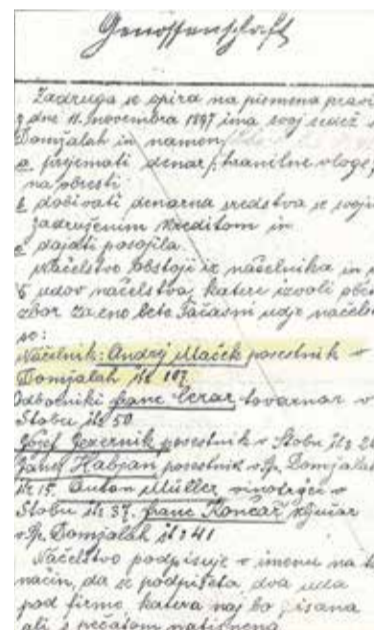 Genossenschaft
Zadruga se opira na pismena pravi
z dne 11. novembra 1897 ima svoj sedež v
Domžalah in namen
a prejemati denar / hranilne vloge /
na obresti
b dobivati denarna sredstva s svojim
zadružnim kreditom in
c dajati posojila
Načelstvo obstoji iz načelnika in
5 udov načelstva, katere izvoli obč
zbor za eno leto. Začasni udje načels
so:
Načelnik: Andrej Maček posestnik v
Domžalah št 107
Odborniki: Franc Cerar tovarnar v
Stobu št 50
Jožef Jezernik posestnik v Stobu št 2
Janez Habjan posestnik v Sp. Domžalah
št 15. Anton Müller
Stobu št 37. Franc Končar ključar
v Sp. Domžalah št 41
Načelstvo podpisuje v imenu na ta
način, da se podpišeta dva uda
pod firmo, katera naj bo pisana
ali s pečatom natisnena